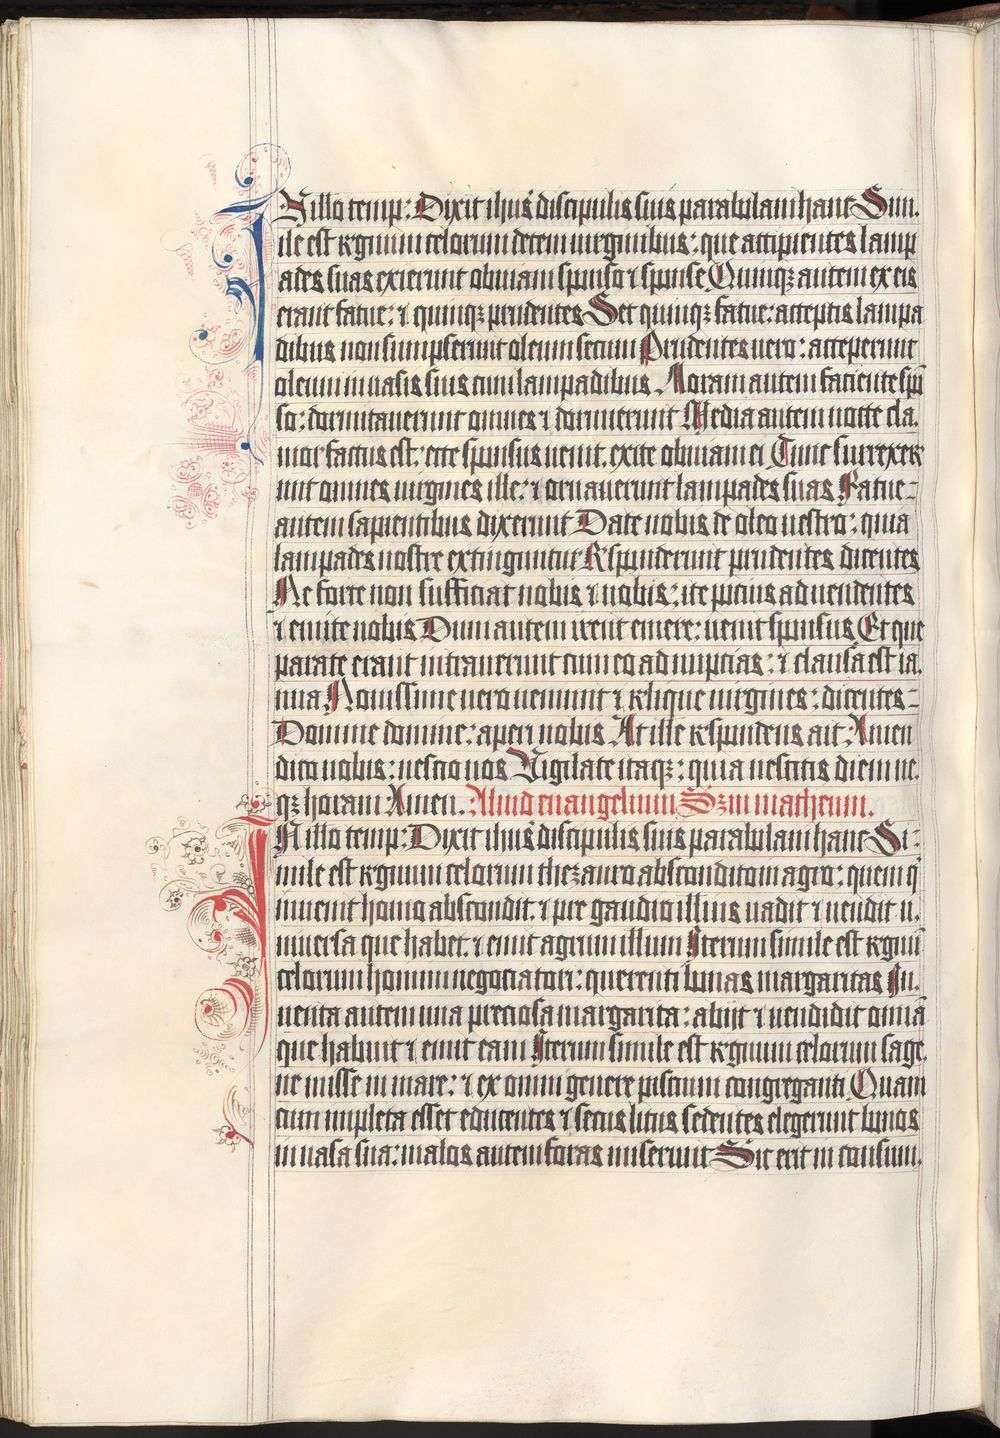 IN illo temp: Dixit ihus discipulis suis parabulam hanc Sim.
ile est regnum celorum decem virginibus: que accipientes lamp
ades suas exierunt obviam sponso ⁊ sponse Quinqꝫ autem ex eis
erant fatue: ⁊ quinqꝫ prudentes Set quinqꝫ fatue: acceptis lampa
dibus non sumpserunt oleum secum Prudentes vero: acceperunt
oleum in vasis suis cum lampadibus Moram autem faciente spō
so: dormitaverunt omnes ⁊ dormierunt Media autem nocte cla.
mor factus est: ecce sponsus venit, exite obviam ei Tunc surrexer
unt omnes virgines ille: ⁊ ornaverunt lampades suas Fatue-
autem sapientibus dixerunt Date nobis de oleo vestro: quia
lampades nostre extinguntur Responderunt prudentes dicentes
Ne forte non sufficiat nobis ⁊ vobis: ite pocius ad vendentes
⁊ emite vobis Dum autem irent emere: venit sponsus Et que
parate erant intraverunt cum eo ad nuptias: ⁊ clausa est ia.
nua Novissime vero veniunt ⁊ relique virgines: dicentes-
Domine domine: aperi nobis At ille respondens ait: Amen
dico vobis: nescio vos Vigilate itaqꝫ: quia nescitis diem ne.
qꝫ horam: Amen. Aliud euangelium Sꝫm matheum.
IN illo temp: Dixit ihus discipulis suis parabulam hanc Si-
mile est regnum celorum thezauro abscondito in agro: quem q̄
invenit homo abscondit: ⁊ pre gaudio illius vadit ⁊ vendit u.
niversa que habet: ⁊ emit agrum illum Iterum simile est regnū
celorum homini negociatori: querenti bonas margaritas In.
venta autem una preciosa margarita: abijt ⁊ vendidit omīa
que habuit ⁊ emit eam Iterum simile est regnum celorum sage.
ne misse in mare: ⁊ ex omni genere piscium congreganti Quam
cum impleta esset educentes ⁊ secus litus sedentes elegerunt bonos
in vasa sua: malos autem foras miserunt Sic erit in consum.